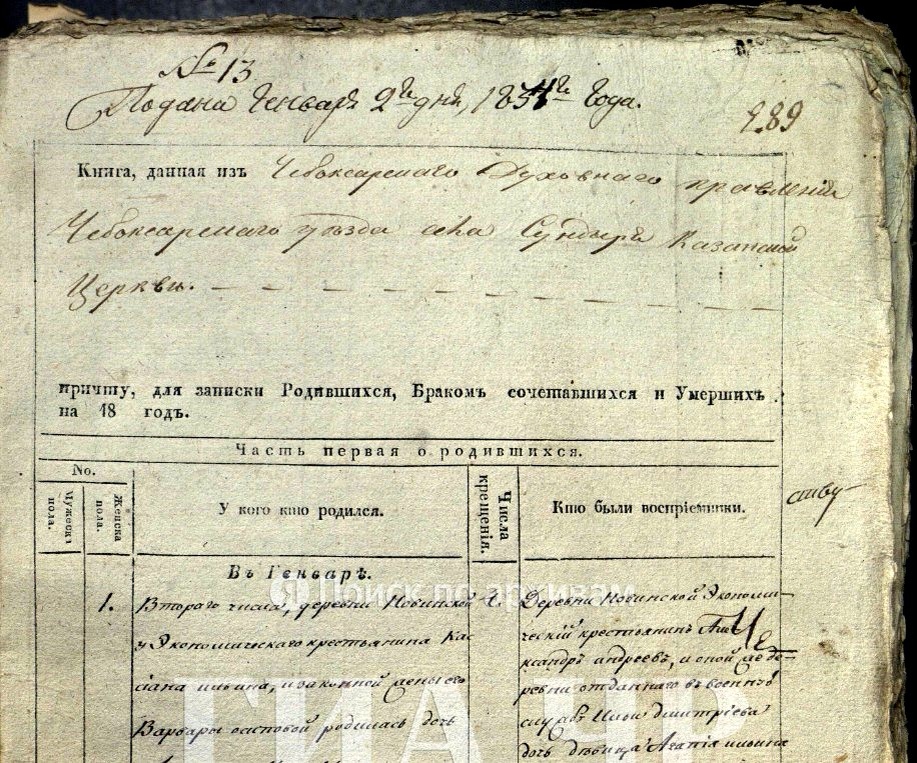 № 13
Подана Генваря 2го дня, 1834го года.
289
Книга, данная изъ Чебоксарскаго Духовнаго правленія
Чебоксарскаго уѣзда села Сундыря Казанской
Церкви.
причту, для записки Родившихся, Бракомъ сочетавшихся и Умершихъ
на 18 годъ.
Часть первая о родившихся.
No.
Мужеска пола.
Женска пола.
У кого кто родился.
Числа крещенія.
Кто были воспріемники.
Въ Генварѣ.
Поиск по архивам
1.
Втораго числа, деревни Новинской
у Экономическаго крестьянина Кас
сіана ильина, и законной жены его
Варвары родилась дочь
Деревни Новинской Экономи-
ческій крестьянинъ Але
ксандръ андреевъ, и оной же де-
ревни отданнаго въ военную
службу Ильи Дмитріева
дочь дѣвица Агапія ильина
ГИА ЧР